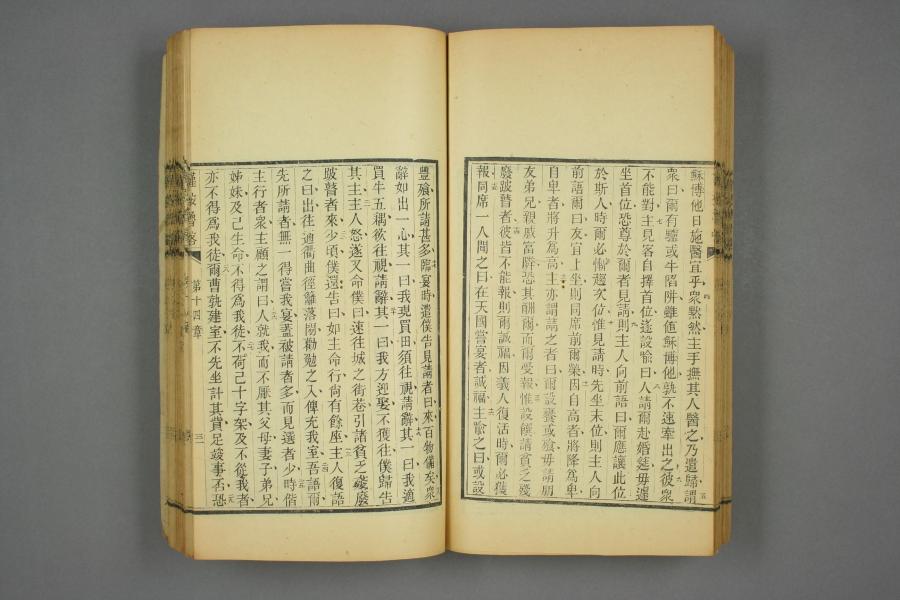 穌愽他日施醫宜乎衆黙然主手撫其人醫之乃遣歸謂
衆曰爾有驢或牛陷阱雖值穌愽他孰不速牽出之彼衆
不能對主見客自擇首位遂設喻曰人請爾赴婚筵毋遽
坐首位恐尊於爾者見請則主人向前語曰爾應讓此位
於斯人時爾必慚趨次位惟見請時先坐末位則主人向
前語爾曰友宜上坐則同席前爾榮因自高者將降爲卑
自卑者將升爲高主亦謂請之者曰爾設饔或飧毋請朋
友弟兄親戚富辟恐其酬爾而爾受報惟設饌請貧乏殘
廢跛瞽者彼皆不能報則爾誠福因義人復活時爾必獲
報同席一人聞之曰在天國嘗宴者誠福主喻之曰或設
豐飧所請甚多臨宴時遣僕告見請者曰來百物備矣衆
辭如出一心其一曰我現買田須往視請辭其一曰我適
買牛五耦欲往視請辭其一曰我方迎娶不獲往僕歸告
其主主人怒遂又命僕曰速往城之街巷引諸貧乏殘廢
跛瞽者來少頃僕還告曰如主命行尙有餘座主人復語
之曰出往逵衢曲徑籬落閒勸勉之入俾充我室吾語爾
先所請者無一得嘗我宴蓋被請者多而見選者少時偕
主行者衆主顧之謂曰人就我而不厭其父母妻子弟兄
姊妹及己生命不得爲我徒不荷己十字架及不從我者
亦不得爲我徒爾曹孰建室不先坐計其貲足竣事丕恐
第十四章
三